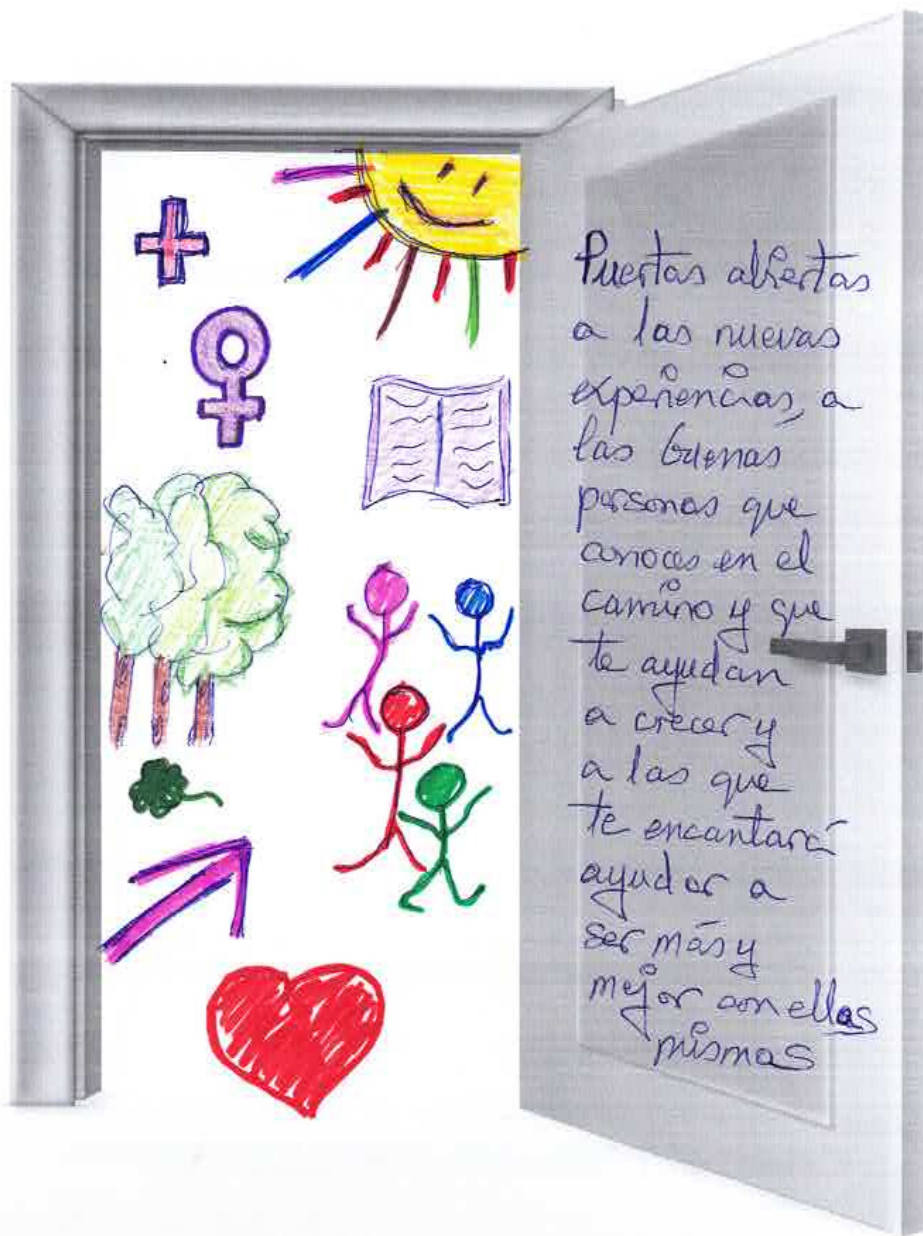 Puertas abiertas
a las nuevas
experiencias, a
las buenas
personas que
conoces en el
camino y que
te ayudan
a crecer y
a las que
te encantará
ayudar a
ser más y
mejor con ellas
mismas